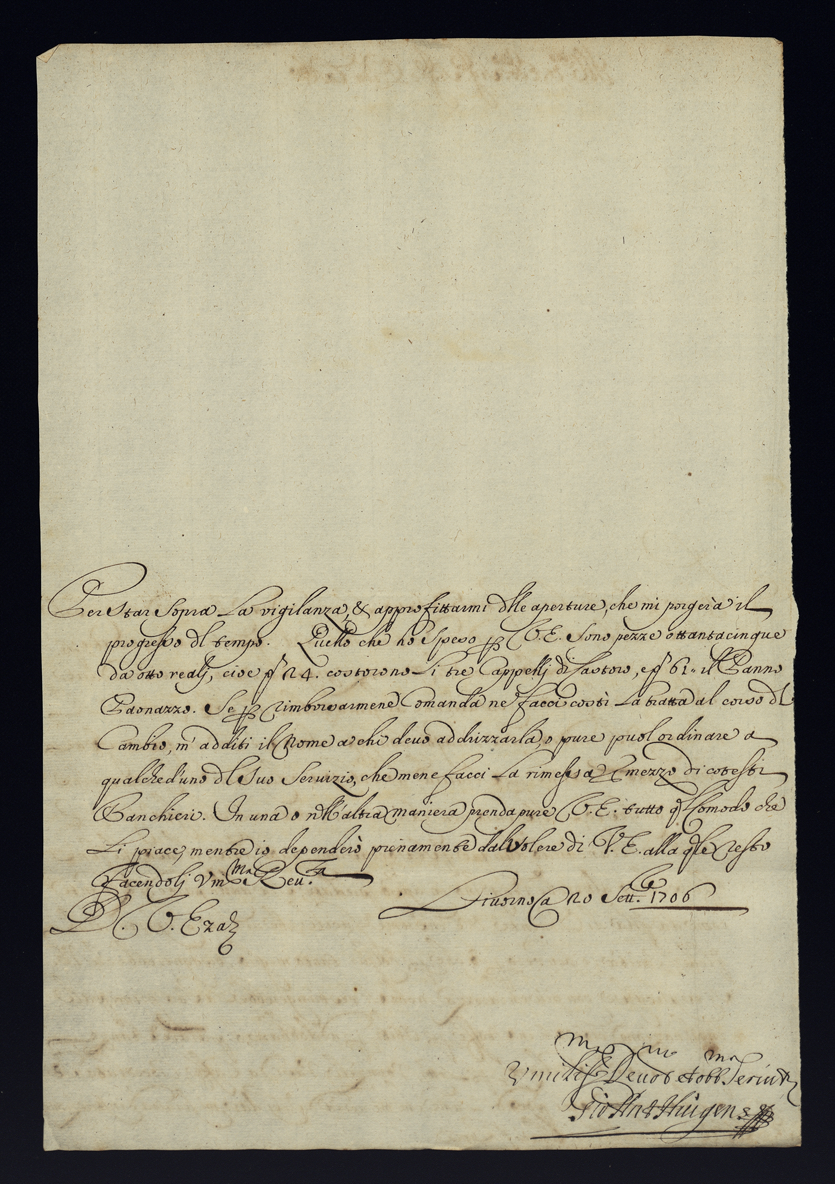 Per Star Sopra La vigilanza, & approfittarmi dlle aperture, che mi porgerà il
progresso dl tempo. Quello che ho Speso p V.E. Sono pezze ottantacinque
da otto realj, cioè p 24. costorono Li tre Cappellj di Castoro, e p 61 il Panno
Paonazzo. Se p rimborsarmene Comanda ne facci costì La tratta al corso dl
Cambio, m'additi il Nome a chi devo addrizzarla, o pure puol ordinare a
qualched'uno dl Suo Servizio, che mene facci La rimessa mezzo di cotesti
Banchieri. In una o nell'altra maniera prenda pure V.E. tutto q.l Comodo che
Li piace, mentre io dependerò pienamente dal Volere di V.E. alla q.le resto
Facendolj Um.ma Reu.za
D. V. Eza
Livorno a 20 Sett.e 1706
Umiliss.mo Deuo.mo et obb.mo Seru
Gio Huigens